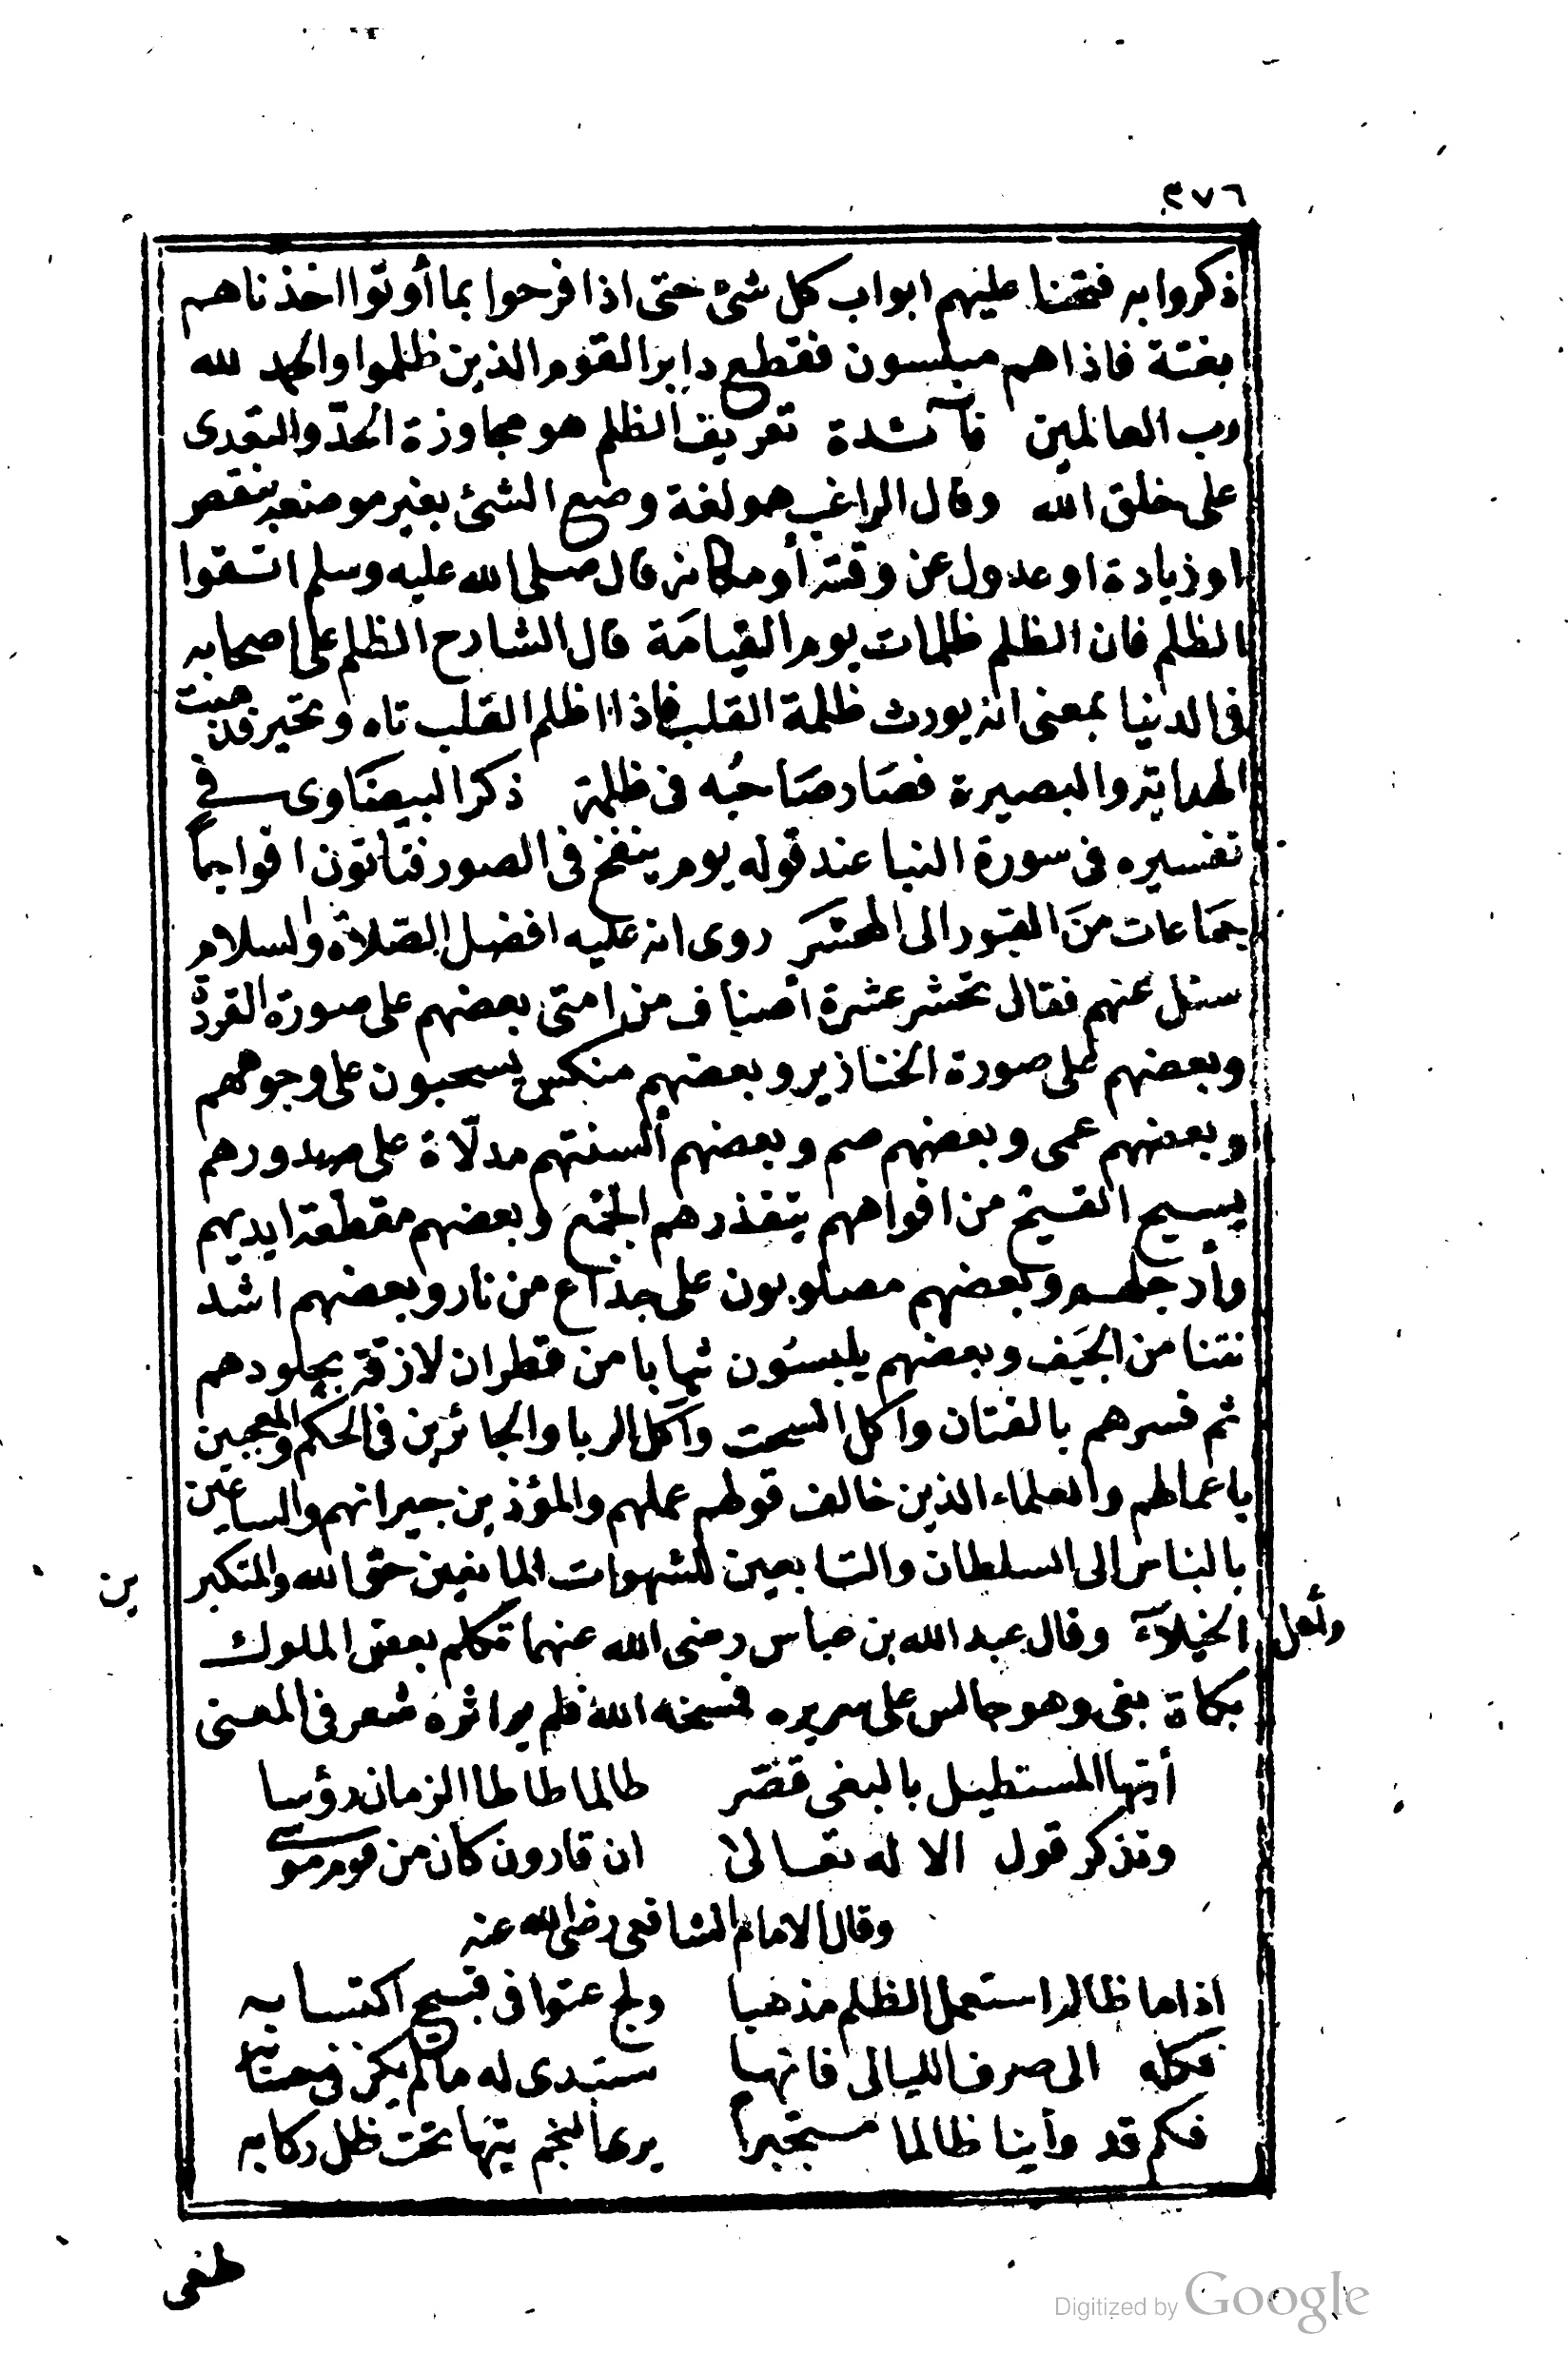 ٢٧٦
ذكروا به فتحنا عليهم ابواب كل شئ حتى اذا فرحوا بما أوتوا اخذناهم
بغتة فاذاهم مبلسون فقطع دابر القوم الذين ظلموا والحمد لله
رب العالمين فآئدة تعريف الظلم هو مجاوزة الحدّ والتعدى
على خلق الله وقال الراغب هو لغة وضع الشئ بغير موضعه بنقص
او زيادة او عدول عن وقته أو مكانه قال صلى الله عليه وسلم اتقوا
الظلم فان الظلم ظلمات يوم القيامة قال الشارح الظلم على اصحابه
فى الدنيا بمعنى انه يورث ظلمة القلب فاذا اظلم القلب تاه وتحير فذهبت
الهداية والبصيرة فصار صاحبه فى ظلمة ذكر البيضاوى في
تفسيره فى سورة النبا عند قوله يوم ينفخ فى الصور فتاتون افواجاً
جماعات من القبور الى المحشر روى انه عليه افضل الصلاة والسلام
سئل عنهم فقال تحشر عشرة أصناف من امتى بعضهم على صورة القردة
وبعضهم على صورة الخنازير وبعضهم منكس يسحبون على وجوههم
وبعضهم عمى وبعضهم صم وبعضهم ألسنتهم مدلّاة على صدورهم
يسيح القيح من افواههم يتقذرهم الجمع وبعضهم مقطعة ايديهم
وأرجلهم وبعضهم مصلوبون على جذاع من نار وبعضهم اشد
نتنا من الجيف وبعضهم يلبسون ثيابا من قطران لازقة بجلودهم
ثم فسرهم بالفتان واكل السحت وآكل الربا والجائرين فى الحكم والمعجبين
باعمالهم والعلماء الذين خالف قولهم عملهم والمؤذين جيرانهم والساعين
بالناس الى السلطان والتابعين للشهوات المانعين حق الله والمتكبرين
وأهل الخيلآء وقال عبد الله بن عباس رضى الله عنهما تكلم بعض الملوك
بكلمة بغى وهو جالس على سريره فمسخه الله فلم ير اثره شعر فى المعنى
أيها المستطيل بالبغى قصّر طالما طاطا الزمان رؤسا
وتذكر قول الاله تعالى ان قارون كان من قوم موسى
وقال الامام الشافعى رضى الله عنه
اذا ما ظالم استعمل الظلم مذهبا ولج عتوا فى قبيح اكتسابه
فكله الى صرف الليالى فانها ستبدى له ما لم يكن فى حسابه
فكم قد رأينا ظالما متجبراً يرى النجم تيها تحت ظل ركابه
طغى
Digitized by Google